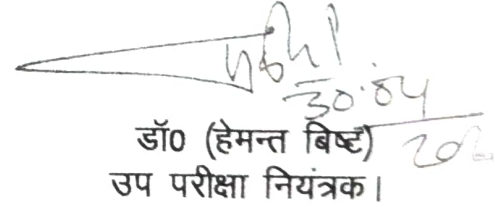 30.04
डॉ0 (हेमन्त बिष्ट)
उप परीक्षा नियंत्रक।